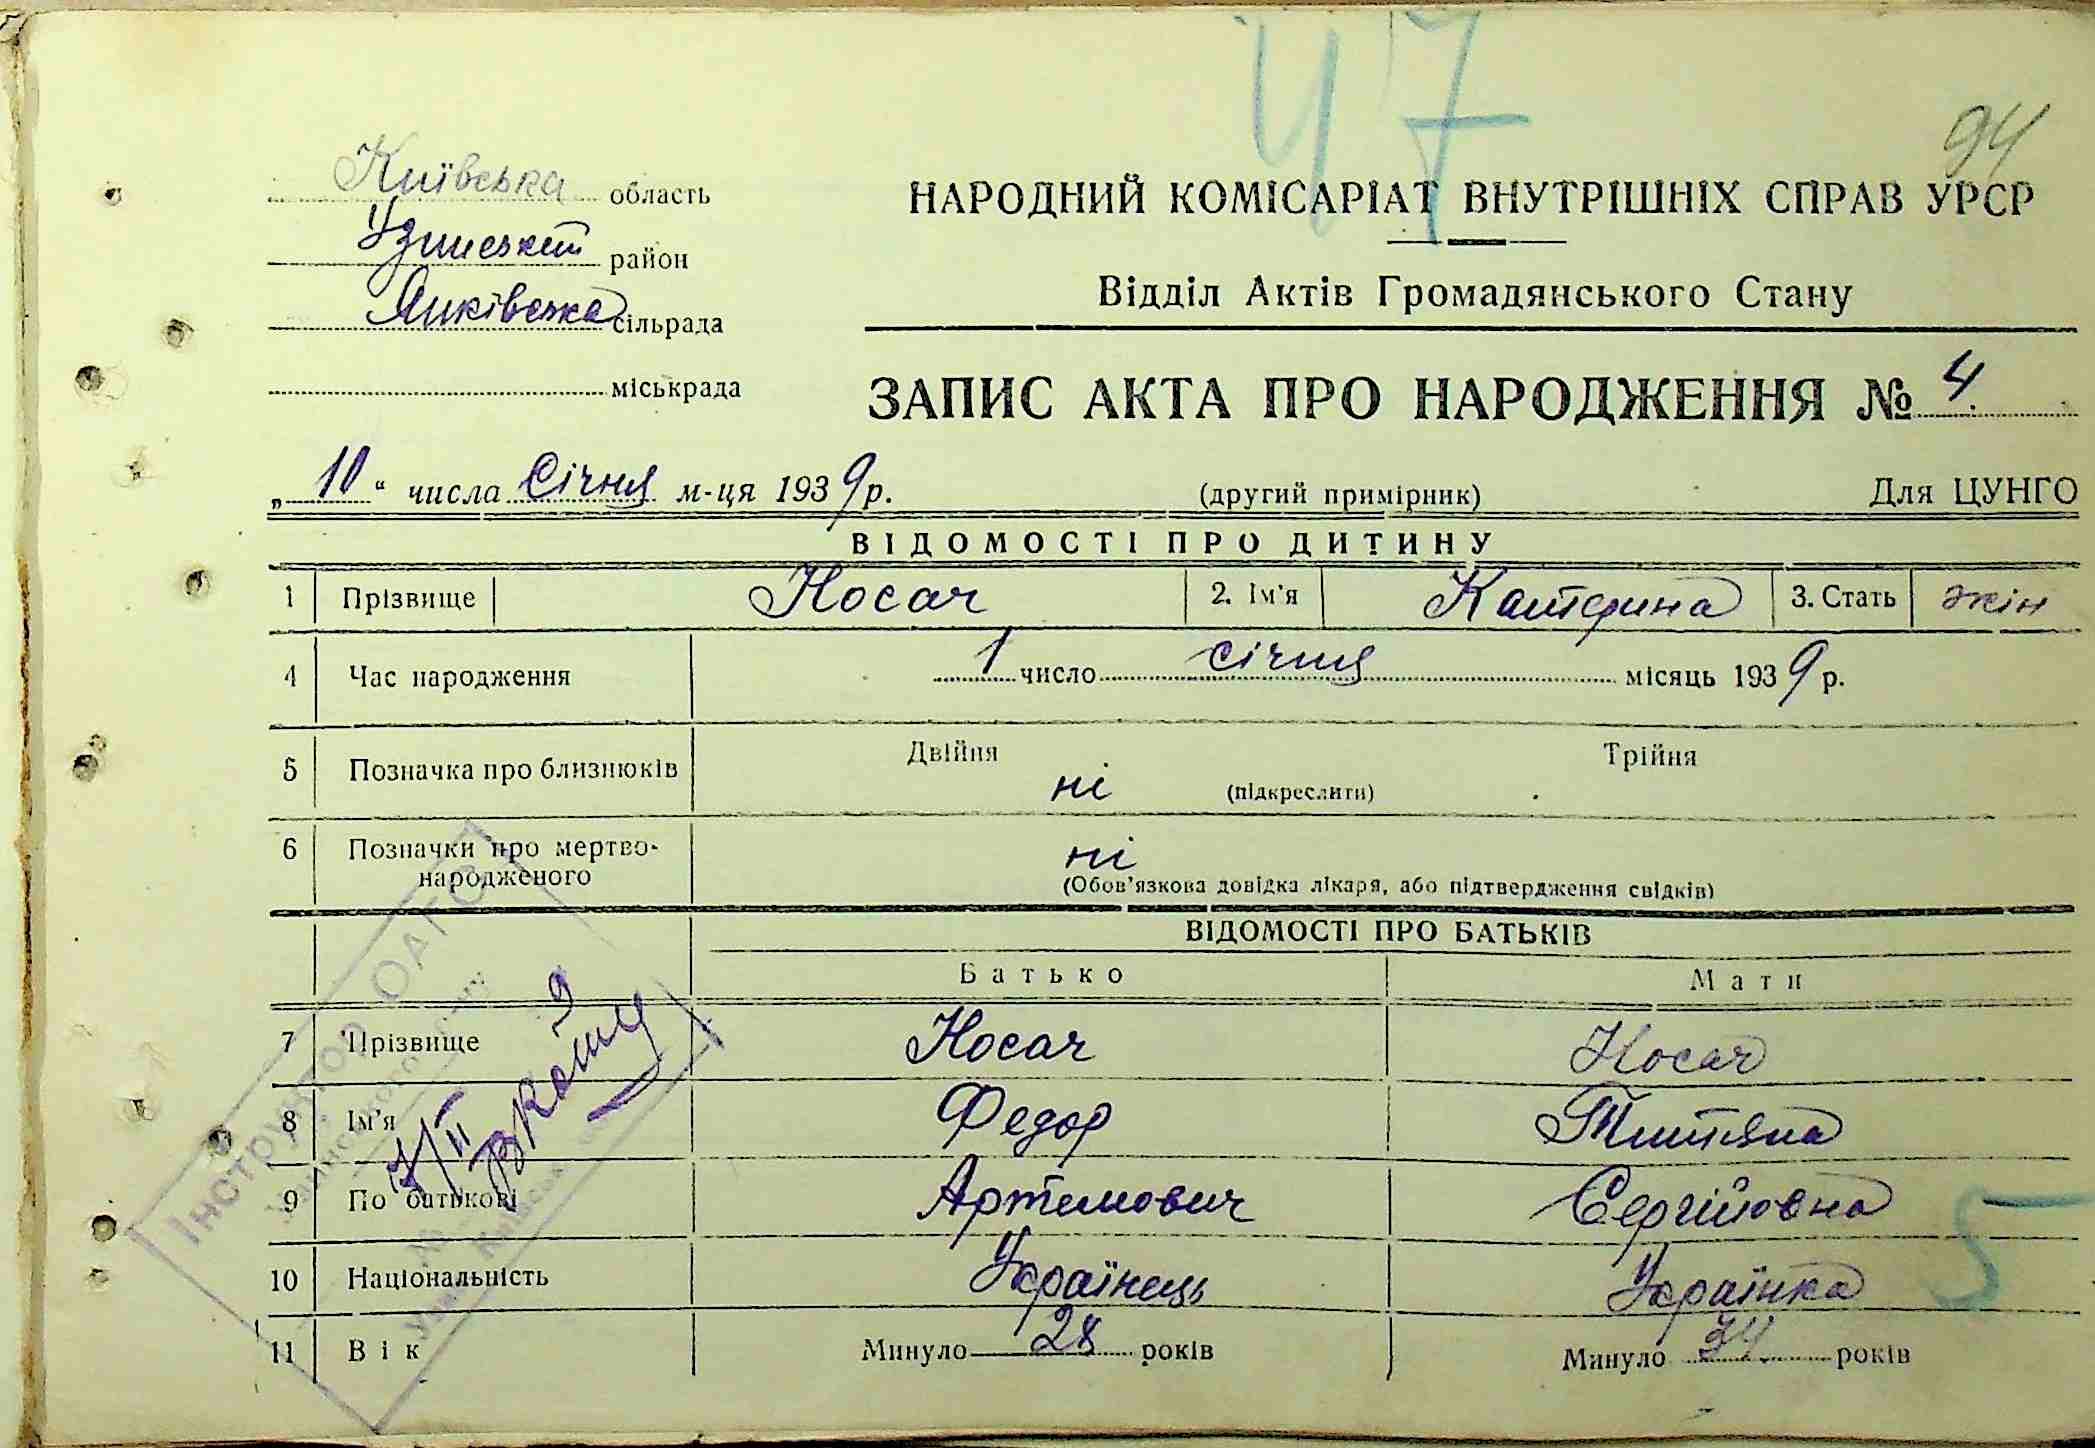 47
94
Київська область
Узинський район
Янківська сільрада
міськрада
НАРОДНИЙ КОМІСАРІАТ ВНУТРІШНІХ СПРАВ УРСР
Відділ Актів Громадянського Стану
ЗАПИС АКТА ПРО НАРОДЖЕННЯ № 4
„10“ числа Січня м-ця 1939 р. (другий примірник) Для ЦУНГО
ВІДОМОСТІ ПРО ДИТИНУ
1 Прізвище Носач 2. Ім'я Катерина 3. Стать жін
4 Час народження 1 число січня місяць 1939 р.
5 Позначка про близнюків Двійня ні (підкреслити) Трійня
6 Позначки про мертво-
народженого ні
(Обов'язкова довідка лікаря, або підтвердження свідків)
ВІДОМОСТІ ПРО БАТЬКІВ
Батько Мати
7 Прізвище Носач Носач
8 Ім'я Федор Титяна
9 По батькові Артемович Сергійовна
10 Національність Українець Українка
5
11 Вік Минуло 28 років Минуло 34 років
Інструктор ОАГС
7/II